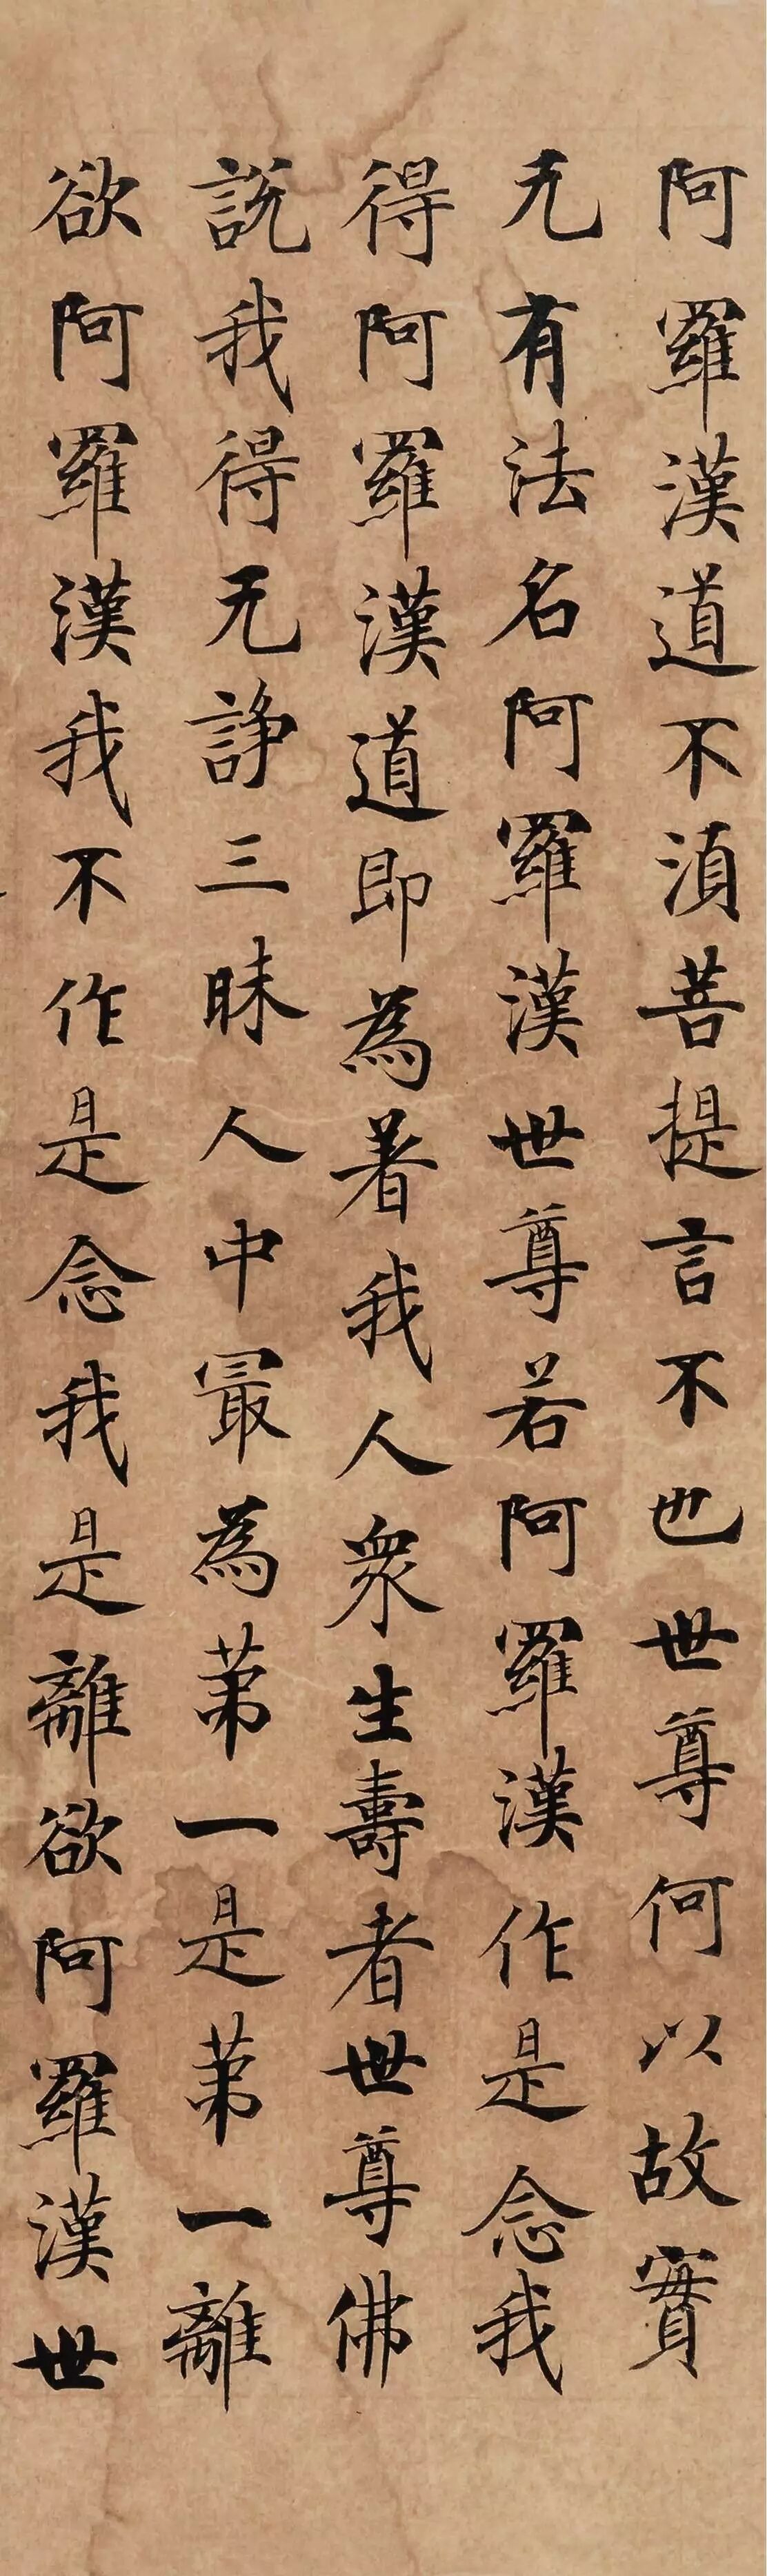 阿羅漢道不湏菩提言不也世尊何以故實
无有法名阿羅漢世尊若阿羅漢作是念我
得阿羅漢道即為著我人衆生壽者世尊佛
說我得无諍三昧人中冣為苐一是苐一離
欲阿羅漢我不作是念我是離欲阿羅漢世